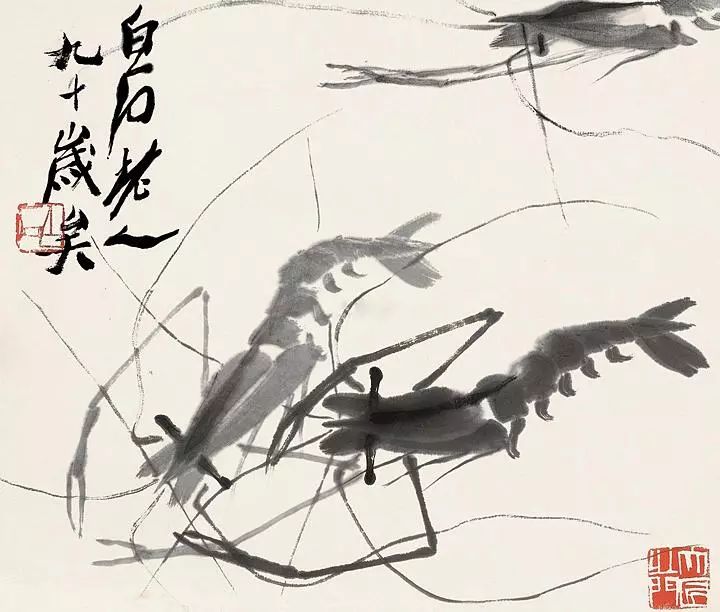 白石老人
九十歲矣